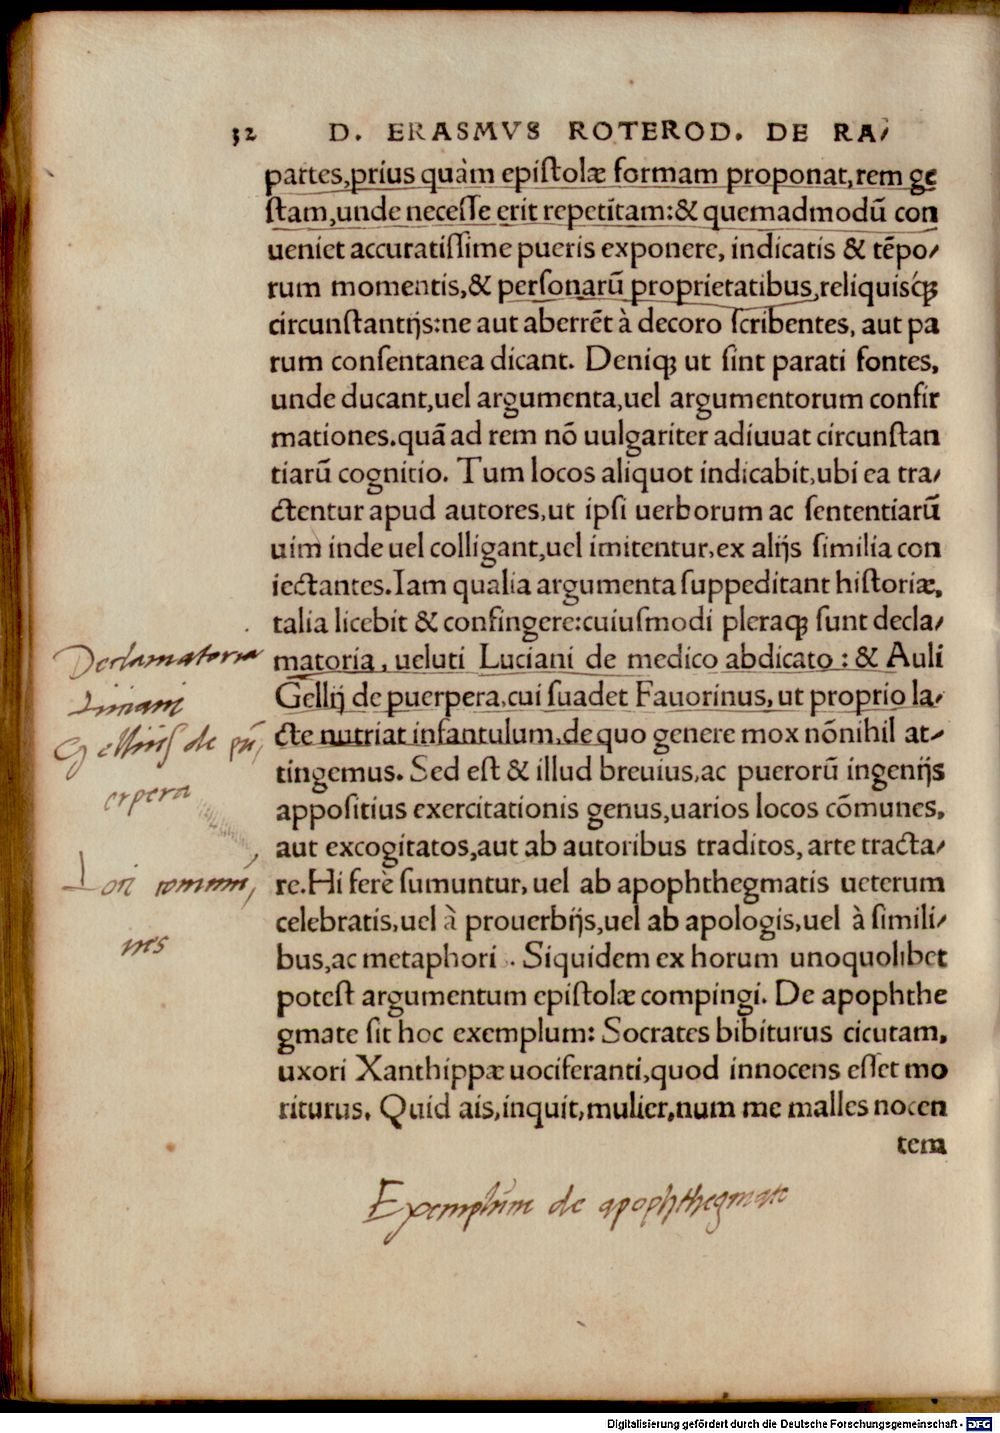 32 D. ERASMVS ROTEROD. DE RA/
partes,prius quàm epistolæ formam proponat,rem ge
stam,unde necesse erit repetitam:& quemadmodū con
ueniet accuratissime pueris exponere, indicatis & tēpo/
rum momentis,& personarū proprietatibus,reliquisq́ꝫ
circunstantijs:ne aut aberrēt à decoro scribentes, aut pa
rum consentanea dicant. Deniqꝫ ut sint parati fontes,
unde ducant,uel argumenta,uel argumentorum confir
mationes.quā ad rem nō uulgariter adiuuat circunstan
tiarū cognitio. Tum locos aliquot indicabit,ubi ea tra/
ctentur apud autores,ut ipsi uerborum ac sententiarū
uim inde uel colligant,uel imitentur,ex alijs similia con
iectantes.Iam qualia argumenta suppeditant historiæ,
talia licebit & confingere:cuiusmodi pleraqꝫ sunt decla/
matoria, ueluti Luciani de medico abdicato : & Auli
Gellij de puerpera,cui suadet Fauorinus, ut proprio la/
cte nutriat infantulum,de quo genere mox nōnihil at/
tingemus. Sed est & illud breuius,ac puerorū ingenijs
appositius exercitationis genus,uarios locos cōmunes,
aut excogitatos,aut ab autoribus traditos, arte tracta/
re.Hi ferè sumuntur, uel ab apophthegmatis ueterum
celebratis,uel à prouerbijs,uel ab apologis,uel à simili/
bus,ac metaphori . Siquidem ex horum unoquolibet
potest argumentum epistolæ compingi. De apophthe
gmate sit hoc exemplum: Socrates bibiturus cicutam,
uxori Xanthippæ uociferanti,quod innocens esset mo
riturus. Quid ais,inquit,mulier,num me malles nocen
tem
Declamatoria
Luciani
Gellius de pu,
erpera
Loci commu,
nes
Exemplum de apophthegmate
Digitalisierung gefördert durch die Deutsche Forschungsgemeinschaft - DFG